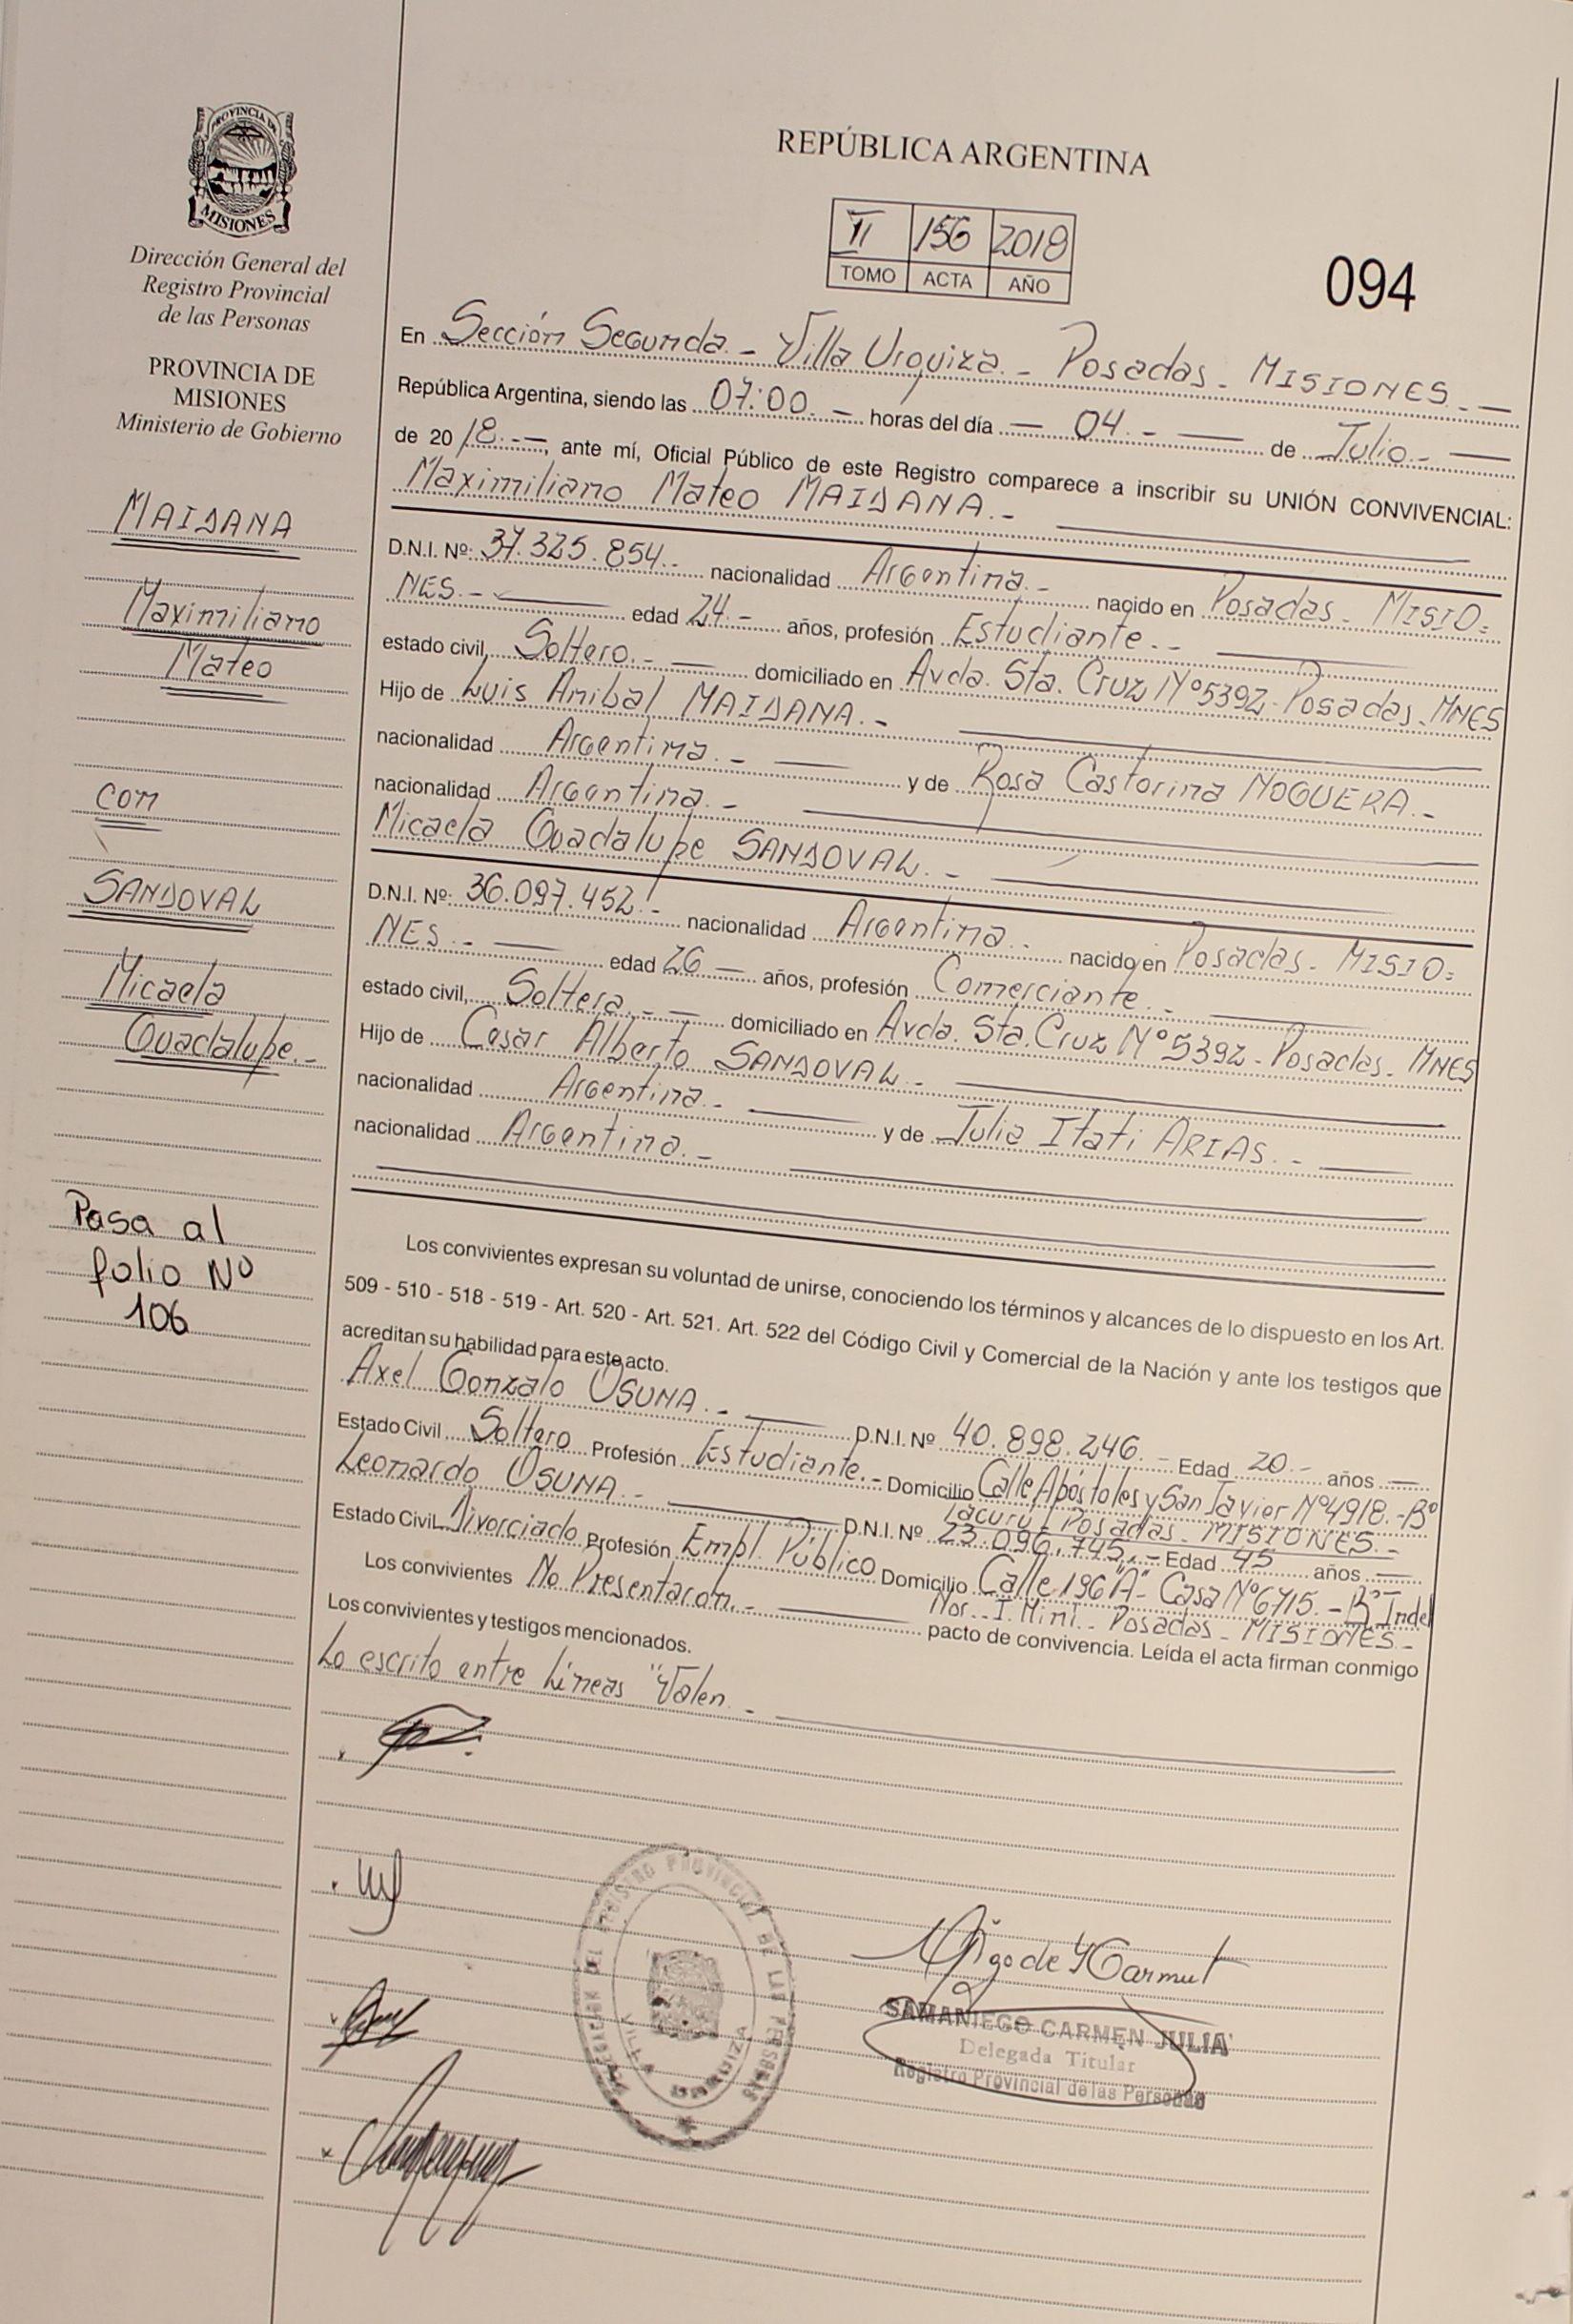 PROVINCIA DE
MISIONES
Dirección General del
Registro Provincial
de las Personas
PROVINCIA DE
MISIONES
Ministerio de Gobierno
MAIDANA
Maximiliano
Mateo
con
SANDOVAL
Micaela
Guadalupe.-
Pasa al
folio Nº
106
REPÚBLICA ARGENTINA
II 156 2018
TOMO ACTA AÑO
094
En Sección Segunda.- Villa Urquiza.- Posadas.- MISIONES.-
República Argentina, siendo las 07:00.- horas del día 04.- de Julio.-
de 2018.-, ante mí, Oficial Público de este Registro comparece a inscribir su UNIÓN CONVIVENCIAL:
Maximiliano Mateo MAIDANA.-
D.N.I. Nº: 37.325.854.- nacionalidad Argentina.- nacido en Posadas- MISIO=
NES.- edad 24.- años, profesión Estudiante.-
estado civil, Soltero.- domiciliado en Avda. Sta. Cruz Nº5392- Posadas- MNES
Hijo de Luis Anibal MAIDANA.-
nacionalidad Argentina.- y de Rosa Castorina NOGUERA.-
nacionalidad Argentina.-
Micaela Guadalupe SANDOVAL.-
D.N.I. Nº: 36.097.452.- nacionalidad Argentina.- nacido en Posadas- MISIO=
NES.- edad 26 años, profesión Comerciante.-
estado civil, Soltera.- domiciliado en Avda. Sta. Cruz Nº5392- Posadas- MNES
Hijo de Cesar Alberto SANDOVAL.-
nacionalidad Argentina.- y de Julia Itati ARIAS.-
nacionalidad Argentina.-
Los convivientes expresan su voluntad de unirse, conociendo los términos y alcances de lo dispuesto en los Art.
509 - 510 - 518 - 519 - Art. 520 - Art. 521. Art. 522 del Código Civil y Comercial de la Nación y ante los testigos que
acreditan su habilidad para este acto.
Axel Gonzalo OSUNA.- D.N.I. Nº 40.898.246.- Edad 20.- años
Estado Civil Soltero Profesión Estudiante.- Domicilio Calle Apóstoles y San Javier Nº4918.-Bº
Yacuru- Posadas- MISIONES.-
Leonardo OSUNA.- D.N.I. Nº 23.096.745.- Edad 45 años
Estado Civil Divorciado Profesión Empl. Público Domicilio Calle 196"A"- Casa Nº6715.- Bº Inde
Nor.- I. Miní.- Posadas- MISIONES.-
Los convivientes No Presentaron.- pacto de convivencia. Leída el acta firman conmigo
Los convivientes y testigos mencionados.
Lo escrito entre Líneas "Valen.-
DELEGACION DEL REGISTRO PROVINCIAL DE LAS PERSONAS
VILLA URQUIZA
SAMANIEGO CARMEN JULIA
Delegada Titular
Registro Provincial de las Personas